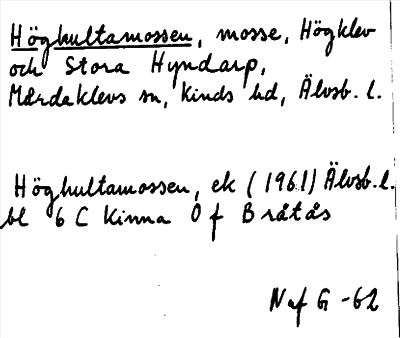 Höghultamossen, mosse, Högklev
och Stora Hyndarp,
Mårdaklevs sn, Kinds hd, Älvsb. l.
Höghultamossen, ek (1961) Älvsb. l.
bl 6 C Kinna Ö f Bråtås
Naf G -62